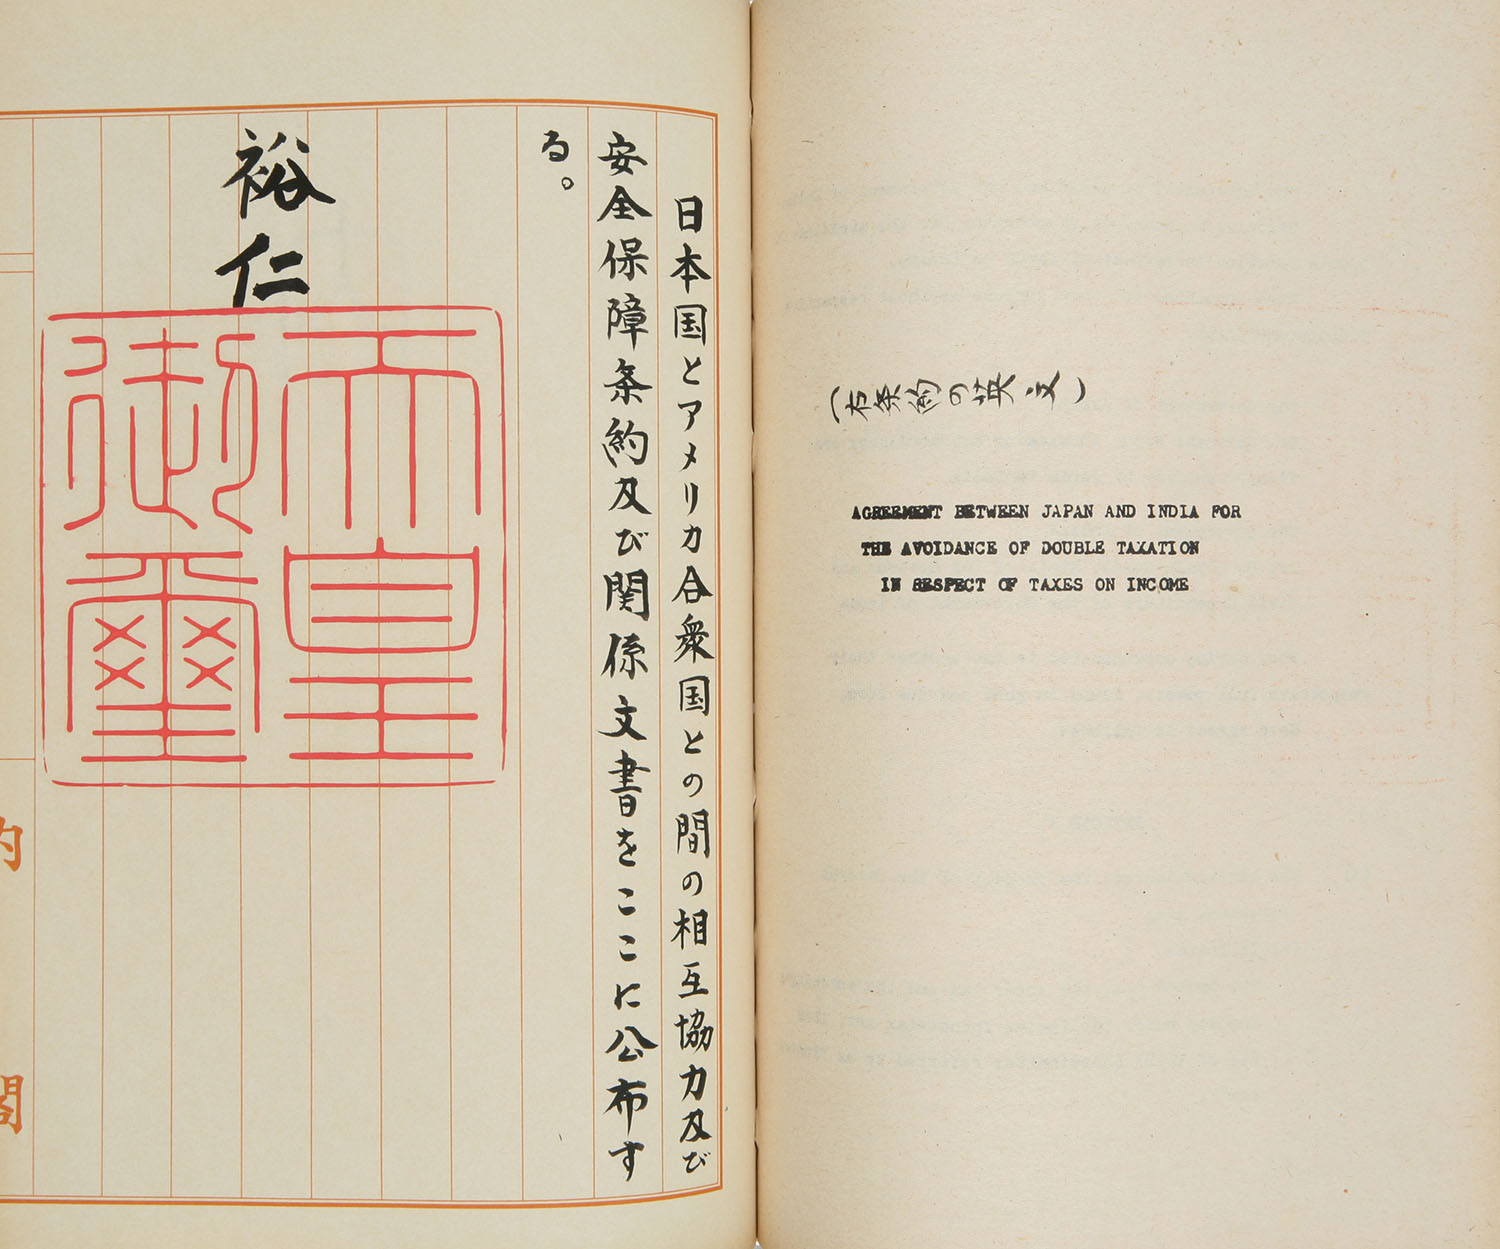 日本国とアメリカ合衆国との間の相互協力及び
安全保障条約及び関係文書をここに公布す
る。
裕仁
天皇
御璽
内閣
(右条約の英文)
AGREEMENT BETWEEN JAPAN AND INDIA FOR
THE AVOIDANCE OF DOUBLE TAXATION
IN RESPECT OF TAXES ON INCOME